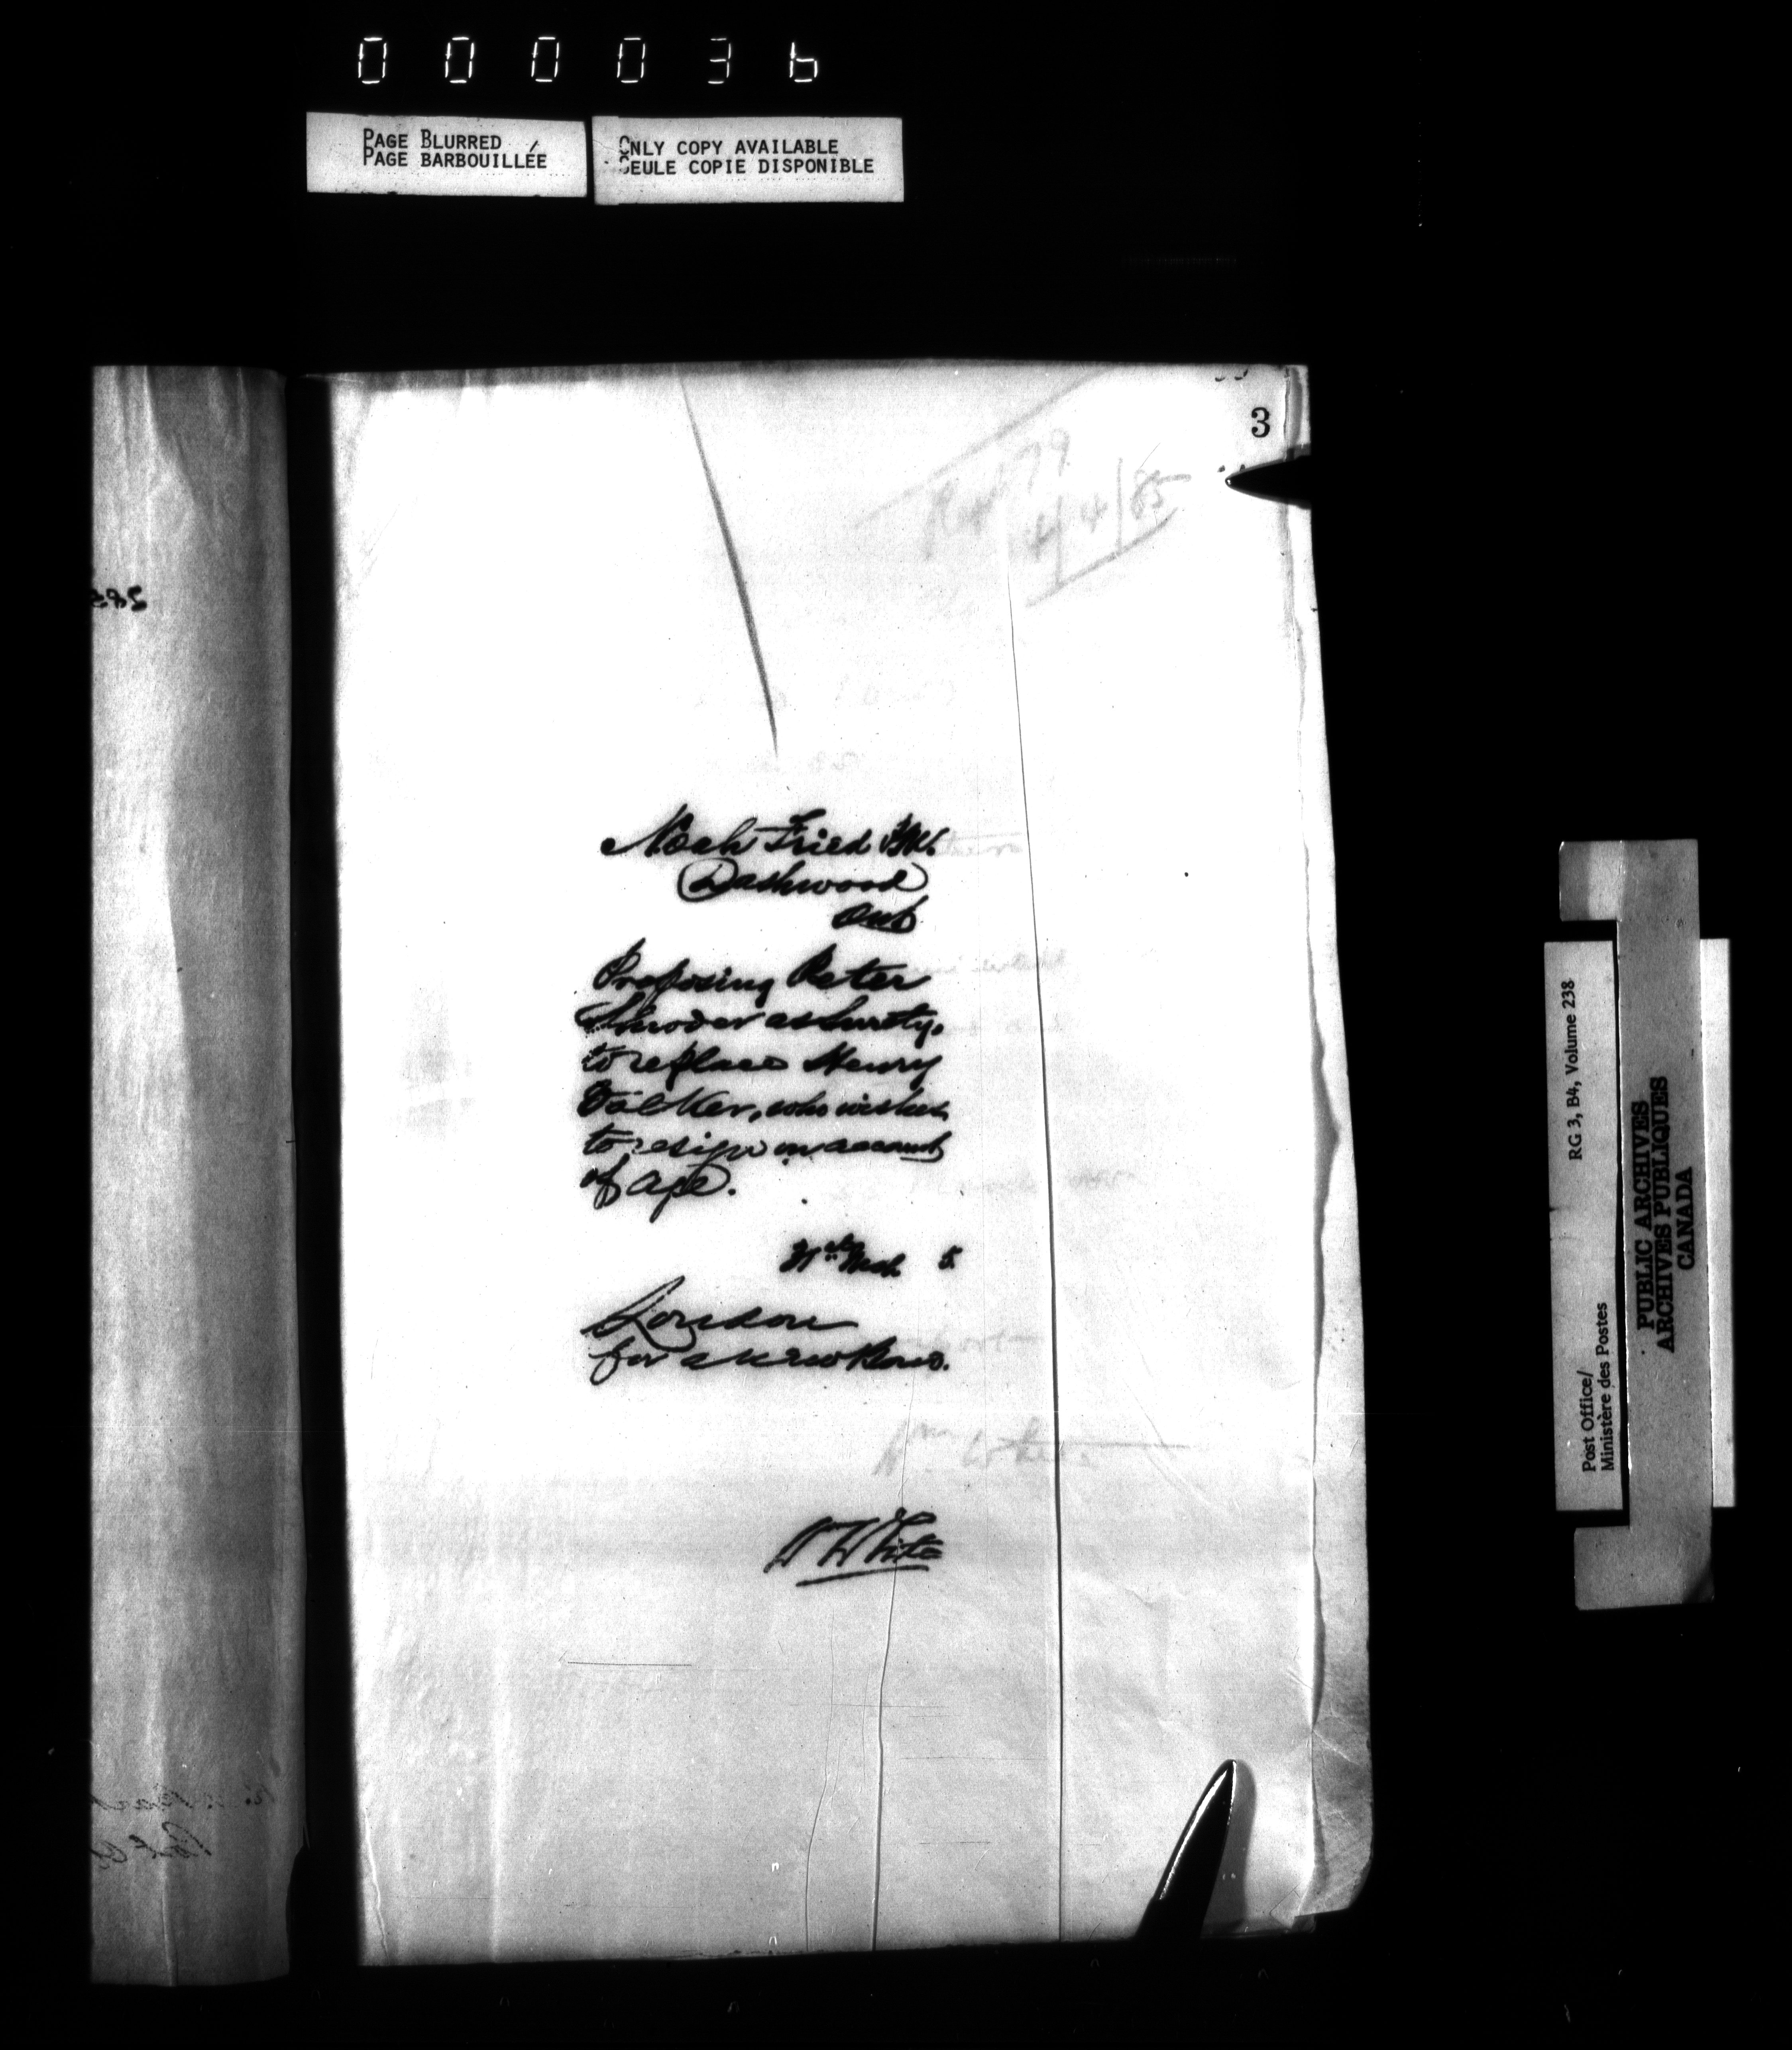 000036
PAGE BLURRED
PAGE BARBOUILLÉE
ONLY COPY AVAILABLE
SEULE COPIE DISPONIBLE
3
79
4/4/85
Noah Fried P.M.
Dashwood
Ont
Proposing Peter
Shroder as Surety,
to replace Henry
Völker, who wishes
to resign on account
of age.
31st Mch 5
London
for a new Bond.
Wm White
W White
RG 3, B4, Volume 238
Post Office/
Ministère des Postes
PUBLIC ARCHIVES
ARCHIVES PUBLIQUES
CANADA